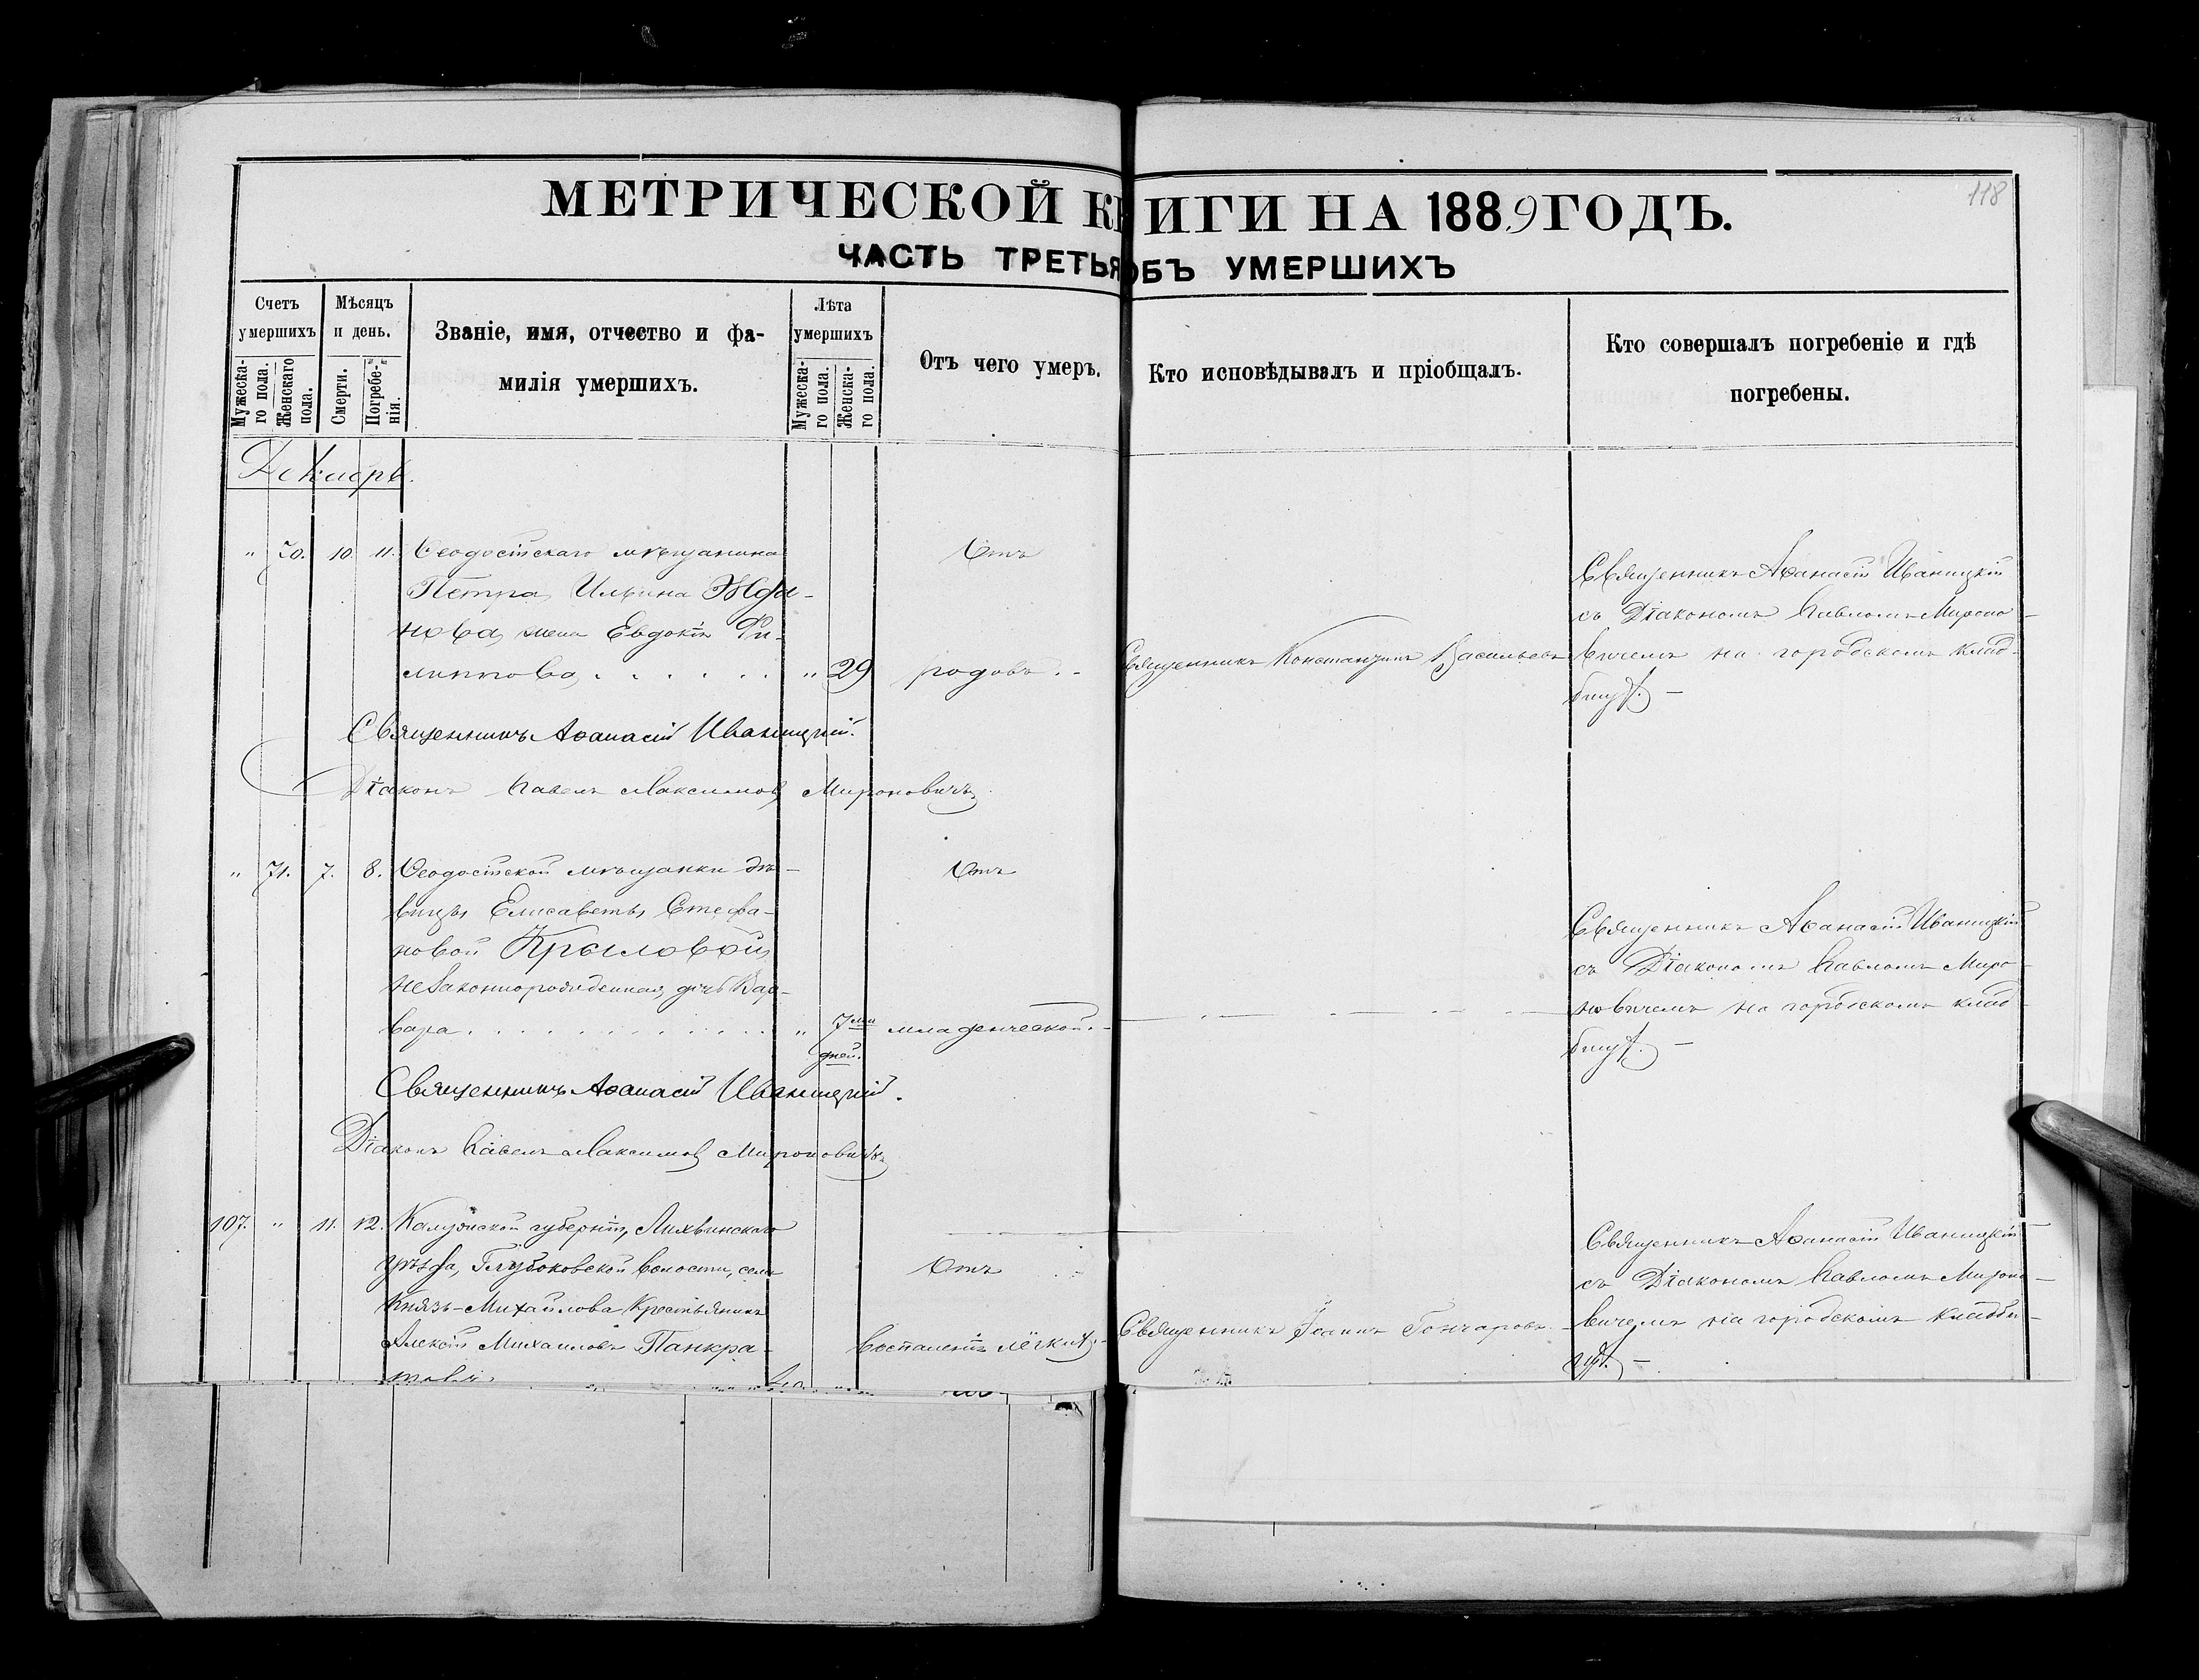 118
МЕТРИЧЕСКОЙ КНИГИ НА 1889 ГОДЪ.
ЧАСТЬ ТРЕТЬЯ ОБЪ УМЕРШИХЪ
Счетъ умершихъ
Мужеска-го пола.
Женскаго пола.
Мѣсяцъ и день.
Смерти.
Погребе-нія.
Званіе, имя, отчество и фа-
милія умершихъ.
Лѣта умершихъ
Мужеска-го пола.
Женска-го пола.
Отъ чего умеръ.
Кто исповѣдывалъ и пріобщалъ.
Кто совершалъ погребеніе и гдѣ
погребены.
Декабрь.
" 70. 10. 11. Ѳеодосійскаго мѣщанина
Петра Ильина Жда-
нова, жена Евдокія Фи-
липпова, . . . . . . " 29
Отъ
родовъ. -
Священникъ Константинъ Васильевъ
Священникъ Аѳанасій Иваницкій
съ Діакономъ Павломъ Мироно-
вичемъ на городскомъ клад-
бищѣ. -
Священникъ Аѳанасій Иваницкій.
Діаконъ Павелъ Максимов Мироновичъ
" 71. 7. 8. Ѳеодосійской мѣщанки дѣ-
вицы Елисаветы Стефа-
новой Крыловой,
незаконнорожденная дочь Вар-
вара . . . . . . . . . . . . " 7ми
дней.
Отъ
младенческой. -
Священникъ Аѳанасій Иваницкій
съ Діакономъ Павломъ Миро-
новичемъ на городскомъ клад-
бищѣ. -
Священникъ Аѳанасій Иваницкій.
Діаконъ Павелъ Максимов Мироновичъ
107. " 11. 12. Калужской губерніи, Лихвинскаго
уѣзда, Глубоковской волости, села
Князь-Михайлова Крестьянинъ
Алексій Михаиловъ Панкра-
товъ
Отъ
воспаленія лёгкихъ. -
Священникъ Іоаннъ Гончаровъ. -
Священникъ Аѳанасій Иваницкій
съ Діакономъ Павломъ Мироно-
вичемъ на городскомъ кладби-
щѣ. -